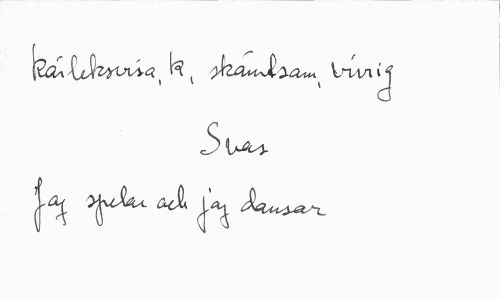 kärleksvisa, k, skämtsam, vivrig
Svas
Jag spelar och jag dansar